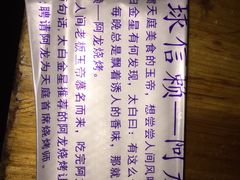 球信赖—阿龙
天庭美食的玉帝，想尝尝人间风味
白金星有何发现，太白曰：有这么
每晚总是飘着诱人的香味，那就
阿龙烧烤。
人间老板玉帝慕名而来，吃完阿
句话：太白金星推荐的阿龙烧烤让
聘请阿龙为天庭首席烧烤师。